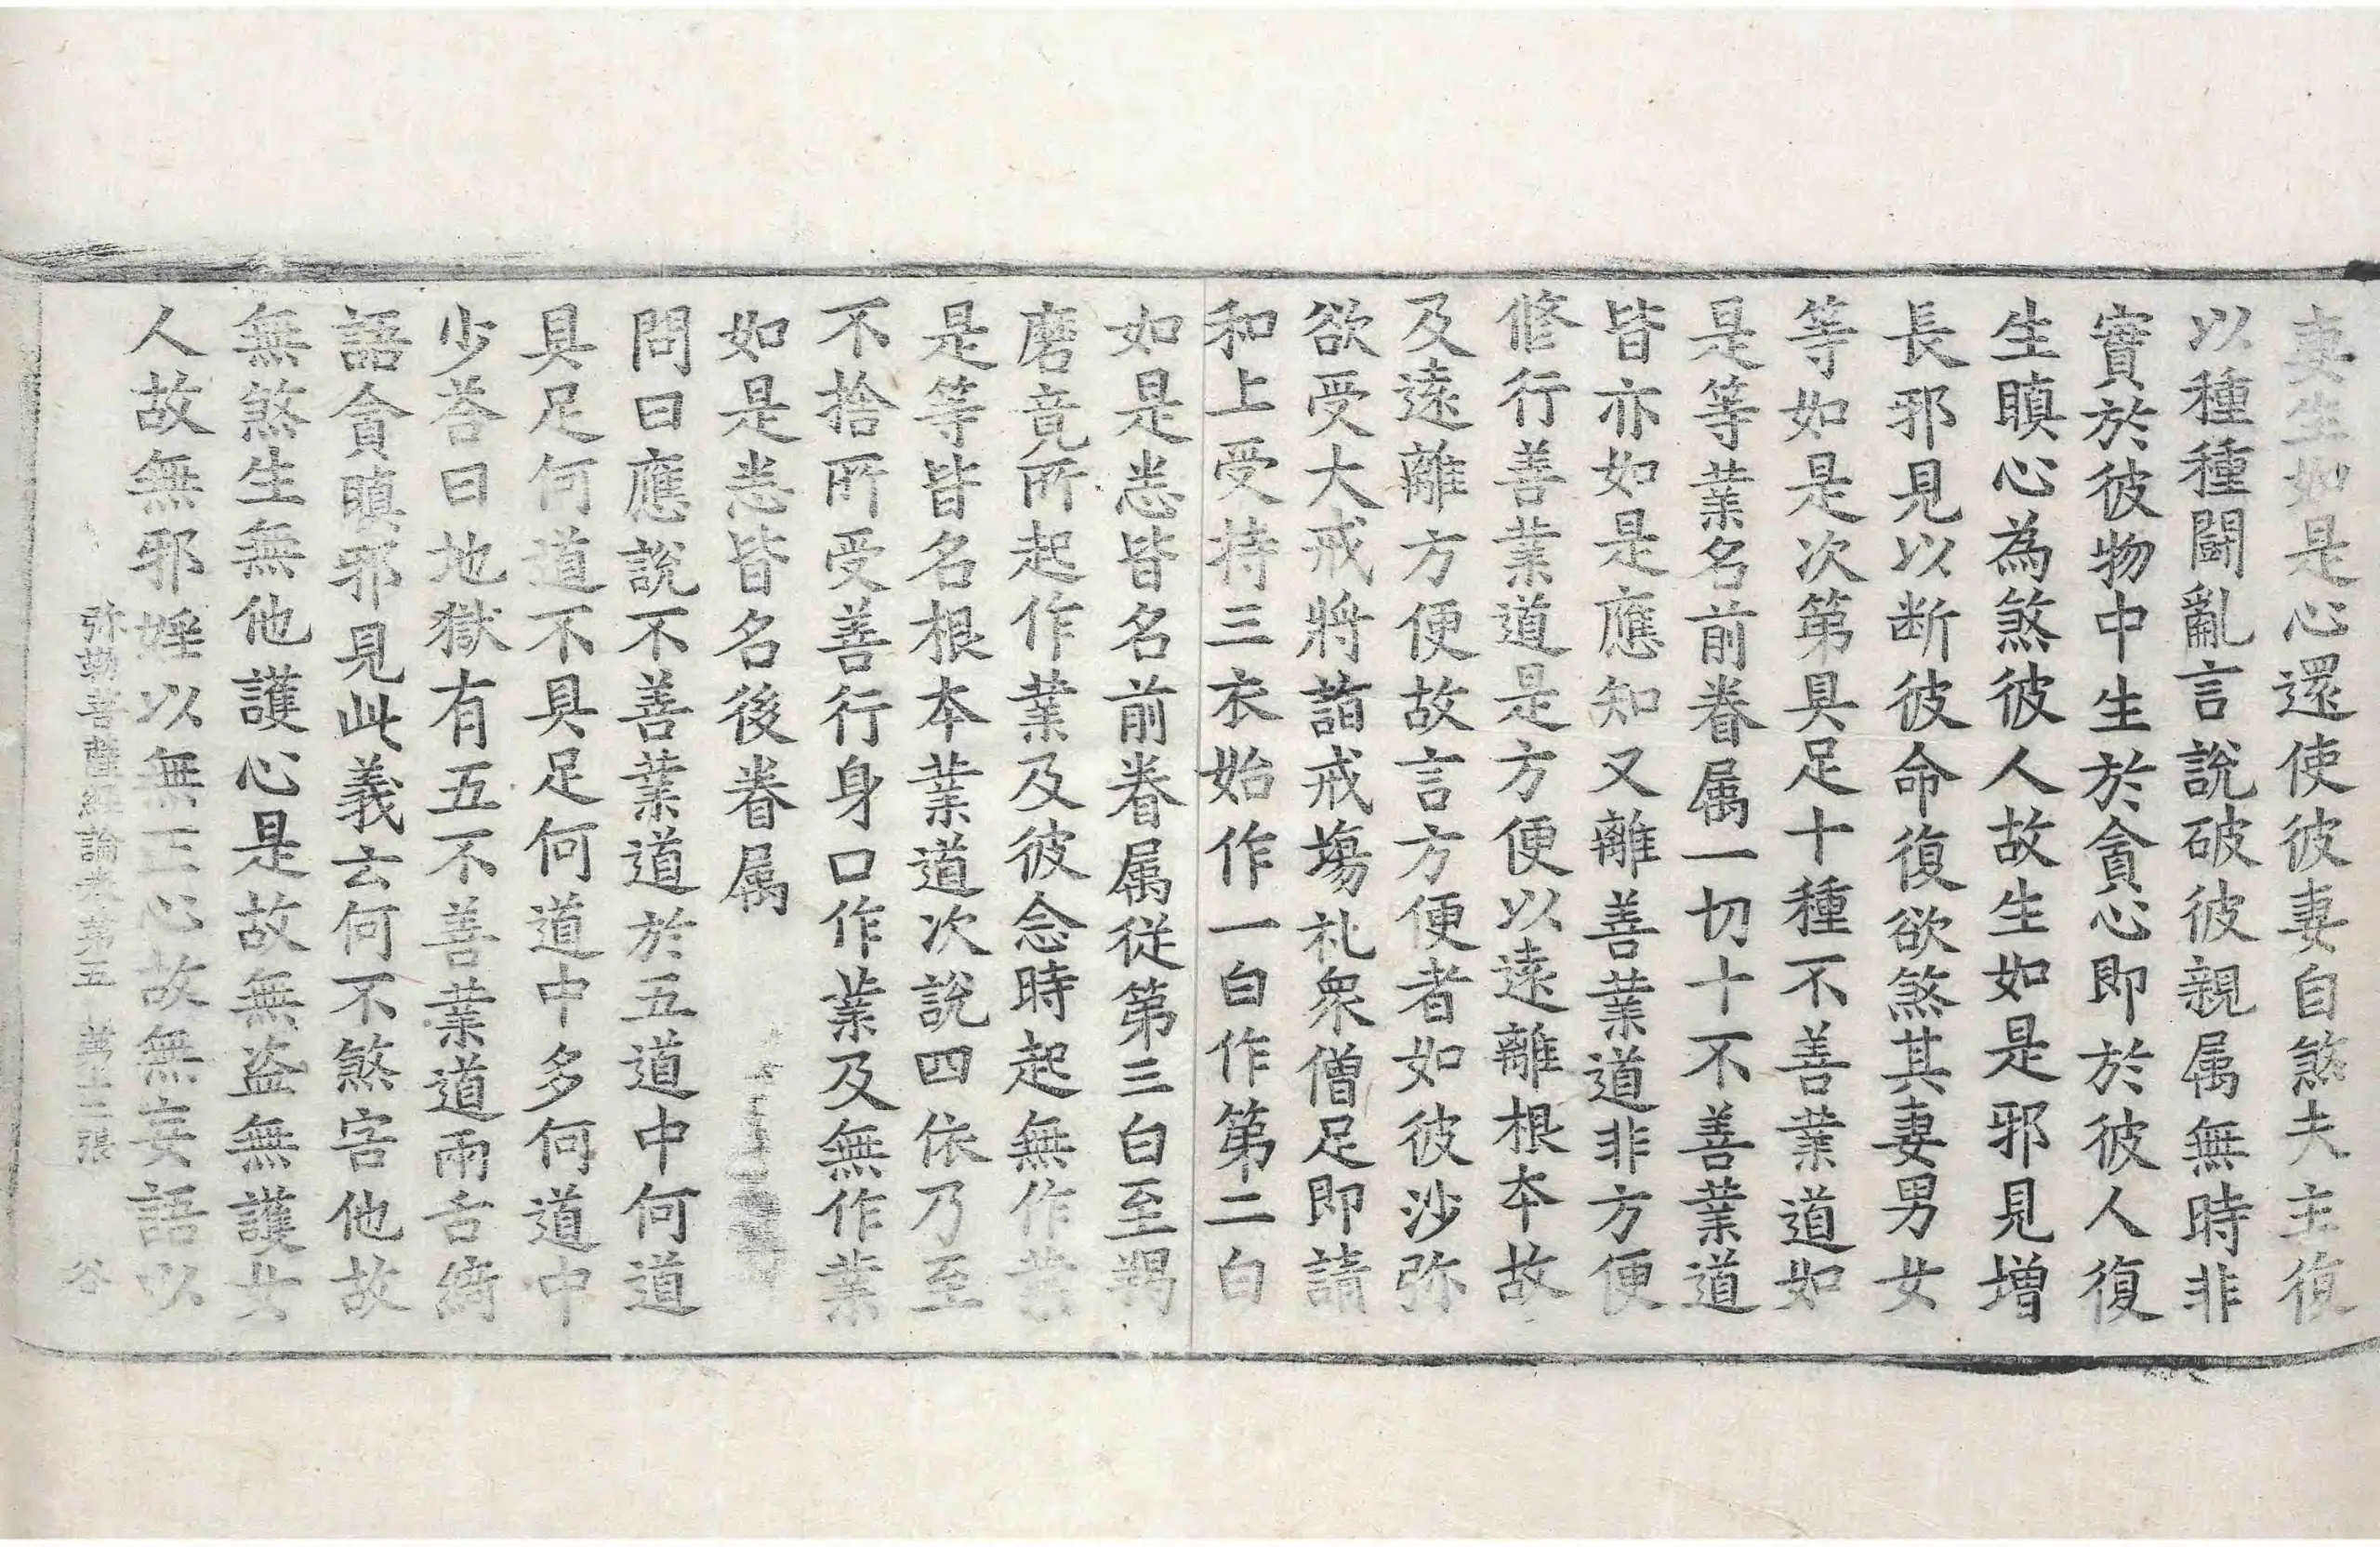 妻生如是心還使彼妻自煞夫主復
以種種鬪亂言說破彼親属無時非
實於彼物中生於貪心即於彼人復
生瞋心為煞彼人故生如是邪見增
長邪見以断彼命復欲煞其妻男女
等如是次第具足十種不善業道如
是等業名前眷属一切十不善業道
皆亦如是應知又離善業道非方便
修行善業道是方便以遠離根本故
及遠離方便故言方便者如彼沙弥
欲受大戒將詣戒場礼衆僧足即請
和上受持三衣始作一白作第二白
如是悉皆名前眷属從第三白至羯
磨竟所起作業及彼念時起無作業
是等皆名根本業道次說四依乃至
不捨所受善行身口作業及無作業
如是悉皆名後眷属
問曰應說不善業道於五道中何道
具足何道不具足何道中多何道中
少荅曰地獄有五不善業道兩舌綺
語貪瞋邪見此義云何不煞害他故
無煞生無他護心是故無盗無護女
人故無邪婬以無正心故無妄語以
弥勒菩薩經論卷第五 苐十三張 谷